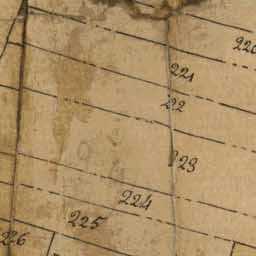 220
221
222
223
224
225
226